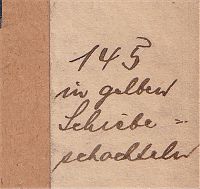 145
in gelben
Schiebe =
schachteln